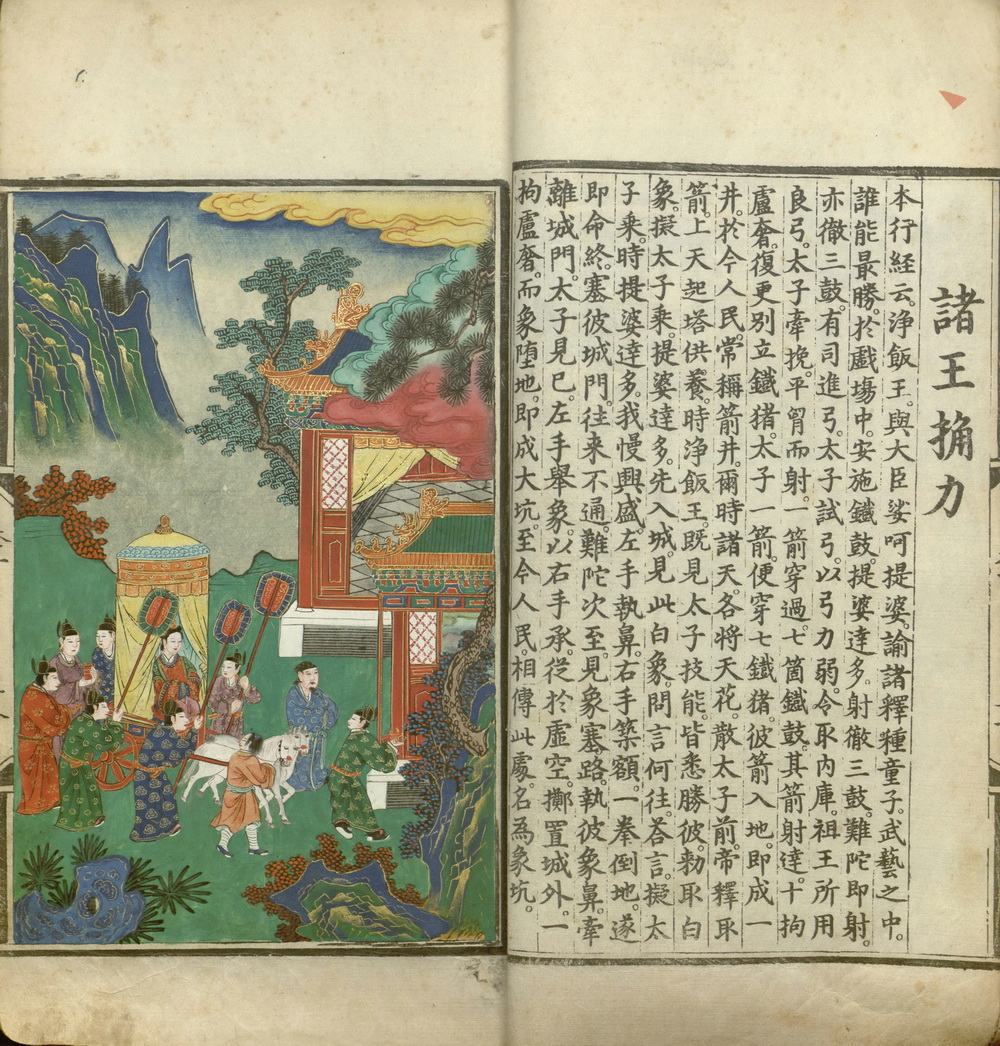 諸王捔力
本行經云。淨飯王。與大臣娑呵提婆。論諸釋種童子。武藝之中。
誰能最勝。於戲場中。安施鐵鼓。提婆達多。射徹三鼓。難陀即射。
亦徹三鼓。有司進弓。太子試弓。以弓力弱。令取內庫。祖王所用
良弓。太子牽挽。平胷而射。一箭穿過七箇鐵鼓。其箭射達。十拘
盧奢。復更別立鐵猪。太子一箭。便穿七鐵猪。彼箭入地。即成一
井。於今人民。常稱箭井。爾時諸天。各將天花。散太子前。帝釋取
箭。上天起塔供養。時淨飯王。既見太子技能。皆悉勝彼。勑取白
象。擬太子乘。提婆達多。先入城。見此白象。問言何往。荅言。擬太
子乘。時提婆達多。我慢興盛。左手執鼻。右手築額。一拳倒地。遂
即命終。塞彼城門。往來不通。難陀次至。見象塞路。執彼象鼻。牽
離城門。太子見已。左手舉象。以右手承。從於虛空。擲置城外。一
拘盧奢。而象墮地。即成大坑。至今人民。相傳此處。名為象坑。